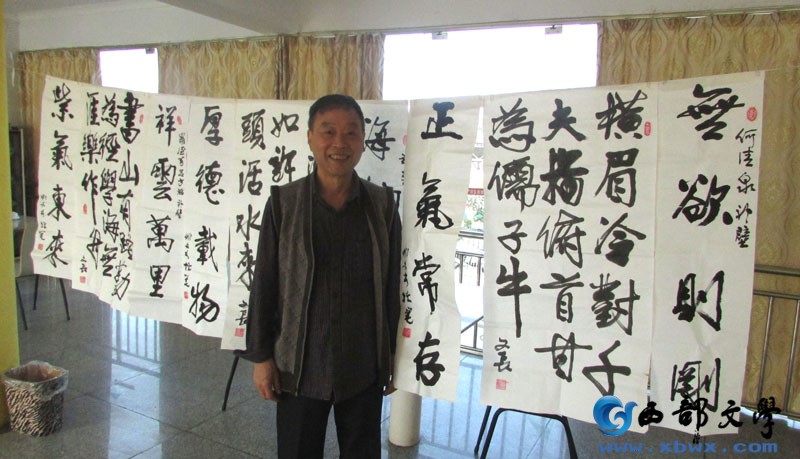 無欲則剛
橫眉冷對千
夫指俯首甘
為儒子牛
正氣常存
海
如許
頭活水來
厚德載物
祥雲萬里
書山有路勤
為徑學海無
涯樂作舟
紫氣東來
西部文學
www.xbwx.com